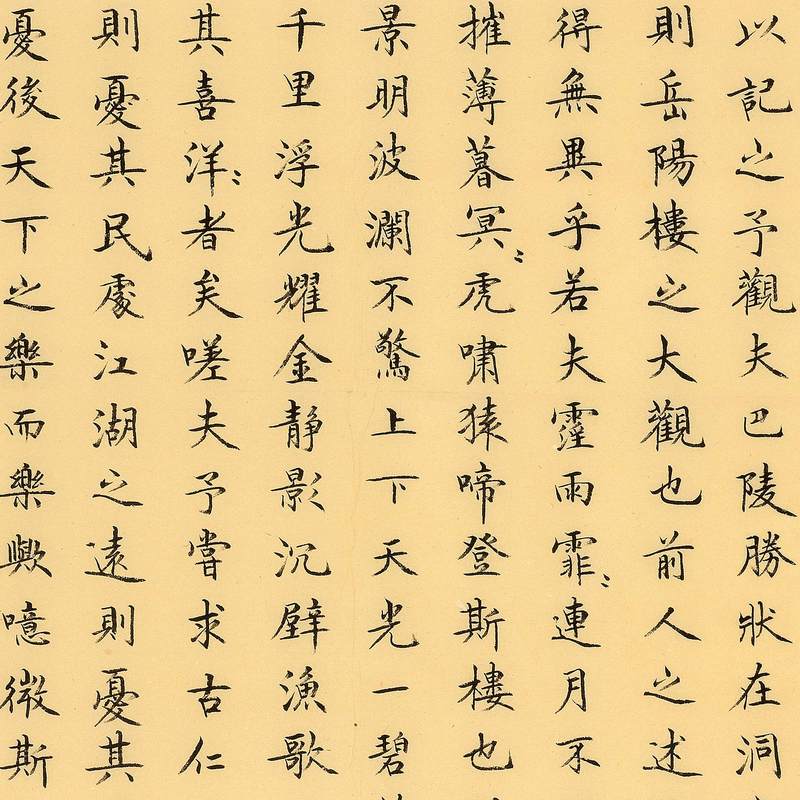 以記之予觀夫巴陵勝狀在洞
則岳陽樓之大觀也前人之述
得無異乎若夫霪雨霏〻連月不
摧薄暮冥〻虎嘯猿啼登斯樓也
景明波瀾不驚上下天光一碧
千里浮光耀金静影沉璧漁歌
其喜洋〻者矣嗟夫予嘗求古仁
則憂其民處江湖之遠則憂其
憂後天下之樂而樂歟噫微斯